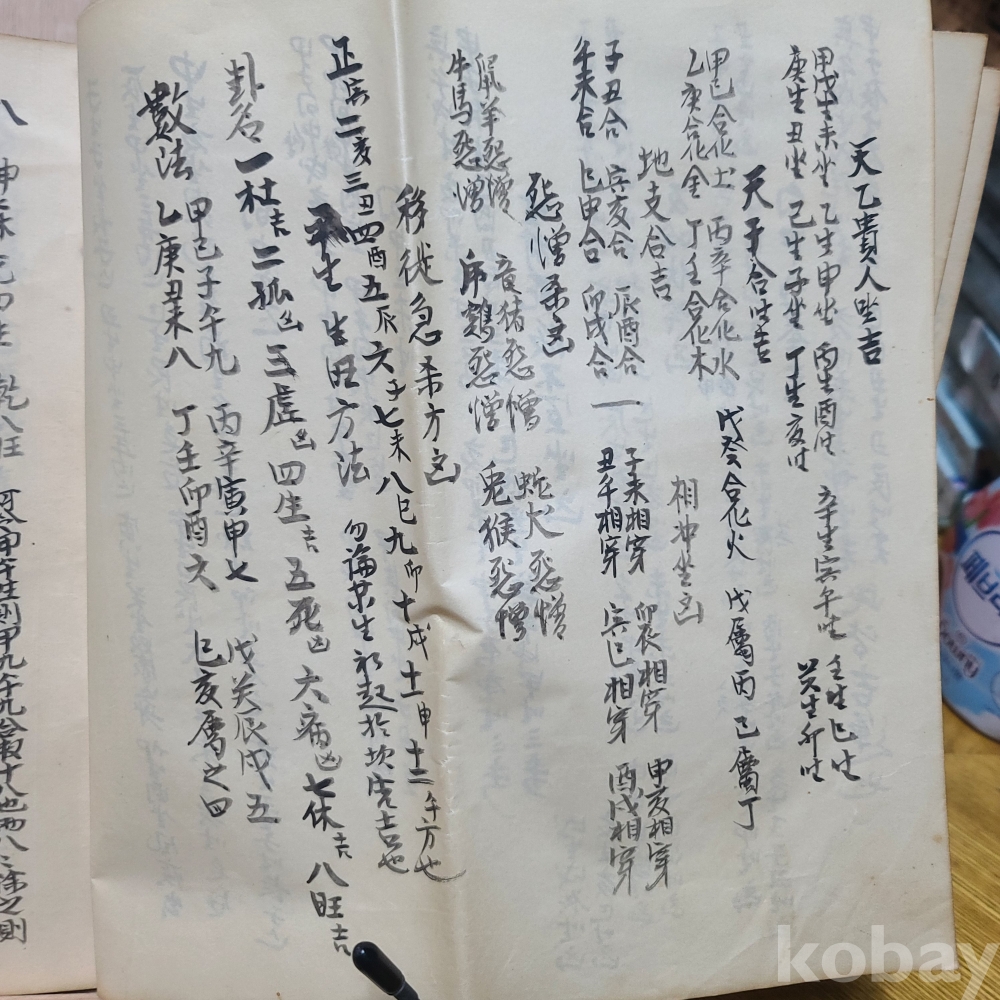 天乙貴人坐吉
甲戊生未坐 乙生申坐 丙生酉坐 辛生寅午坐 壬生巳坐
庚生丑坐 己生子坐 丁生亥坐 癸生卯坐
天干合坐吉
甲己合化土 丙辛合化水 戊癸合化火 戊屬丙 己屬丁
乙庚合化金 丁壬合化木
地支合吉 相冲坐凶
子丑合 寅亥合 辰酉合 子未相穿 卯辰相穿 申亥相穿
午未合 巳申合 卯戌合 丑午相穿 寅巳相穿 酉戌相穿
怨憎杀凶
鼠羊怨憎 竜猪怨憎 蛇犬怨憎
牛馬怨憎 帍鷄怨憎 兎猴怨憎
移徙急杀方凶
正寅二亥三丑四酉五辰六子七未八巳九卯十戌十一申十二午方也
生 生旺方法 勿論某生初起於坎宮吉也
卦名 一杜吉 二孤凶 三虛凶 四生吉 五死凶 六病凶 七休吉 八旺吉
數法 甲己子午九 丙辛寅申七 戊癸辰戌五
乙庚丑未八 丁壬卯酉六 巳亥屬之四
八
kobay